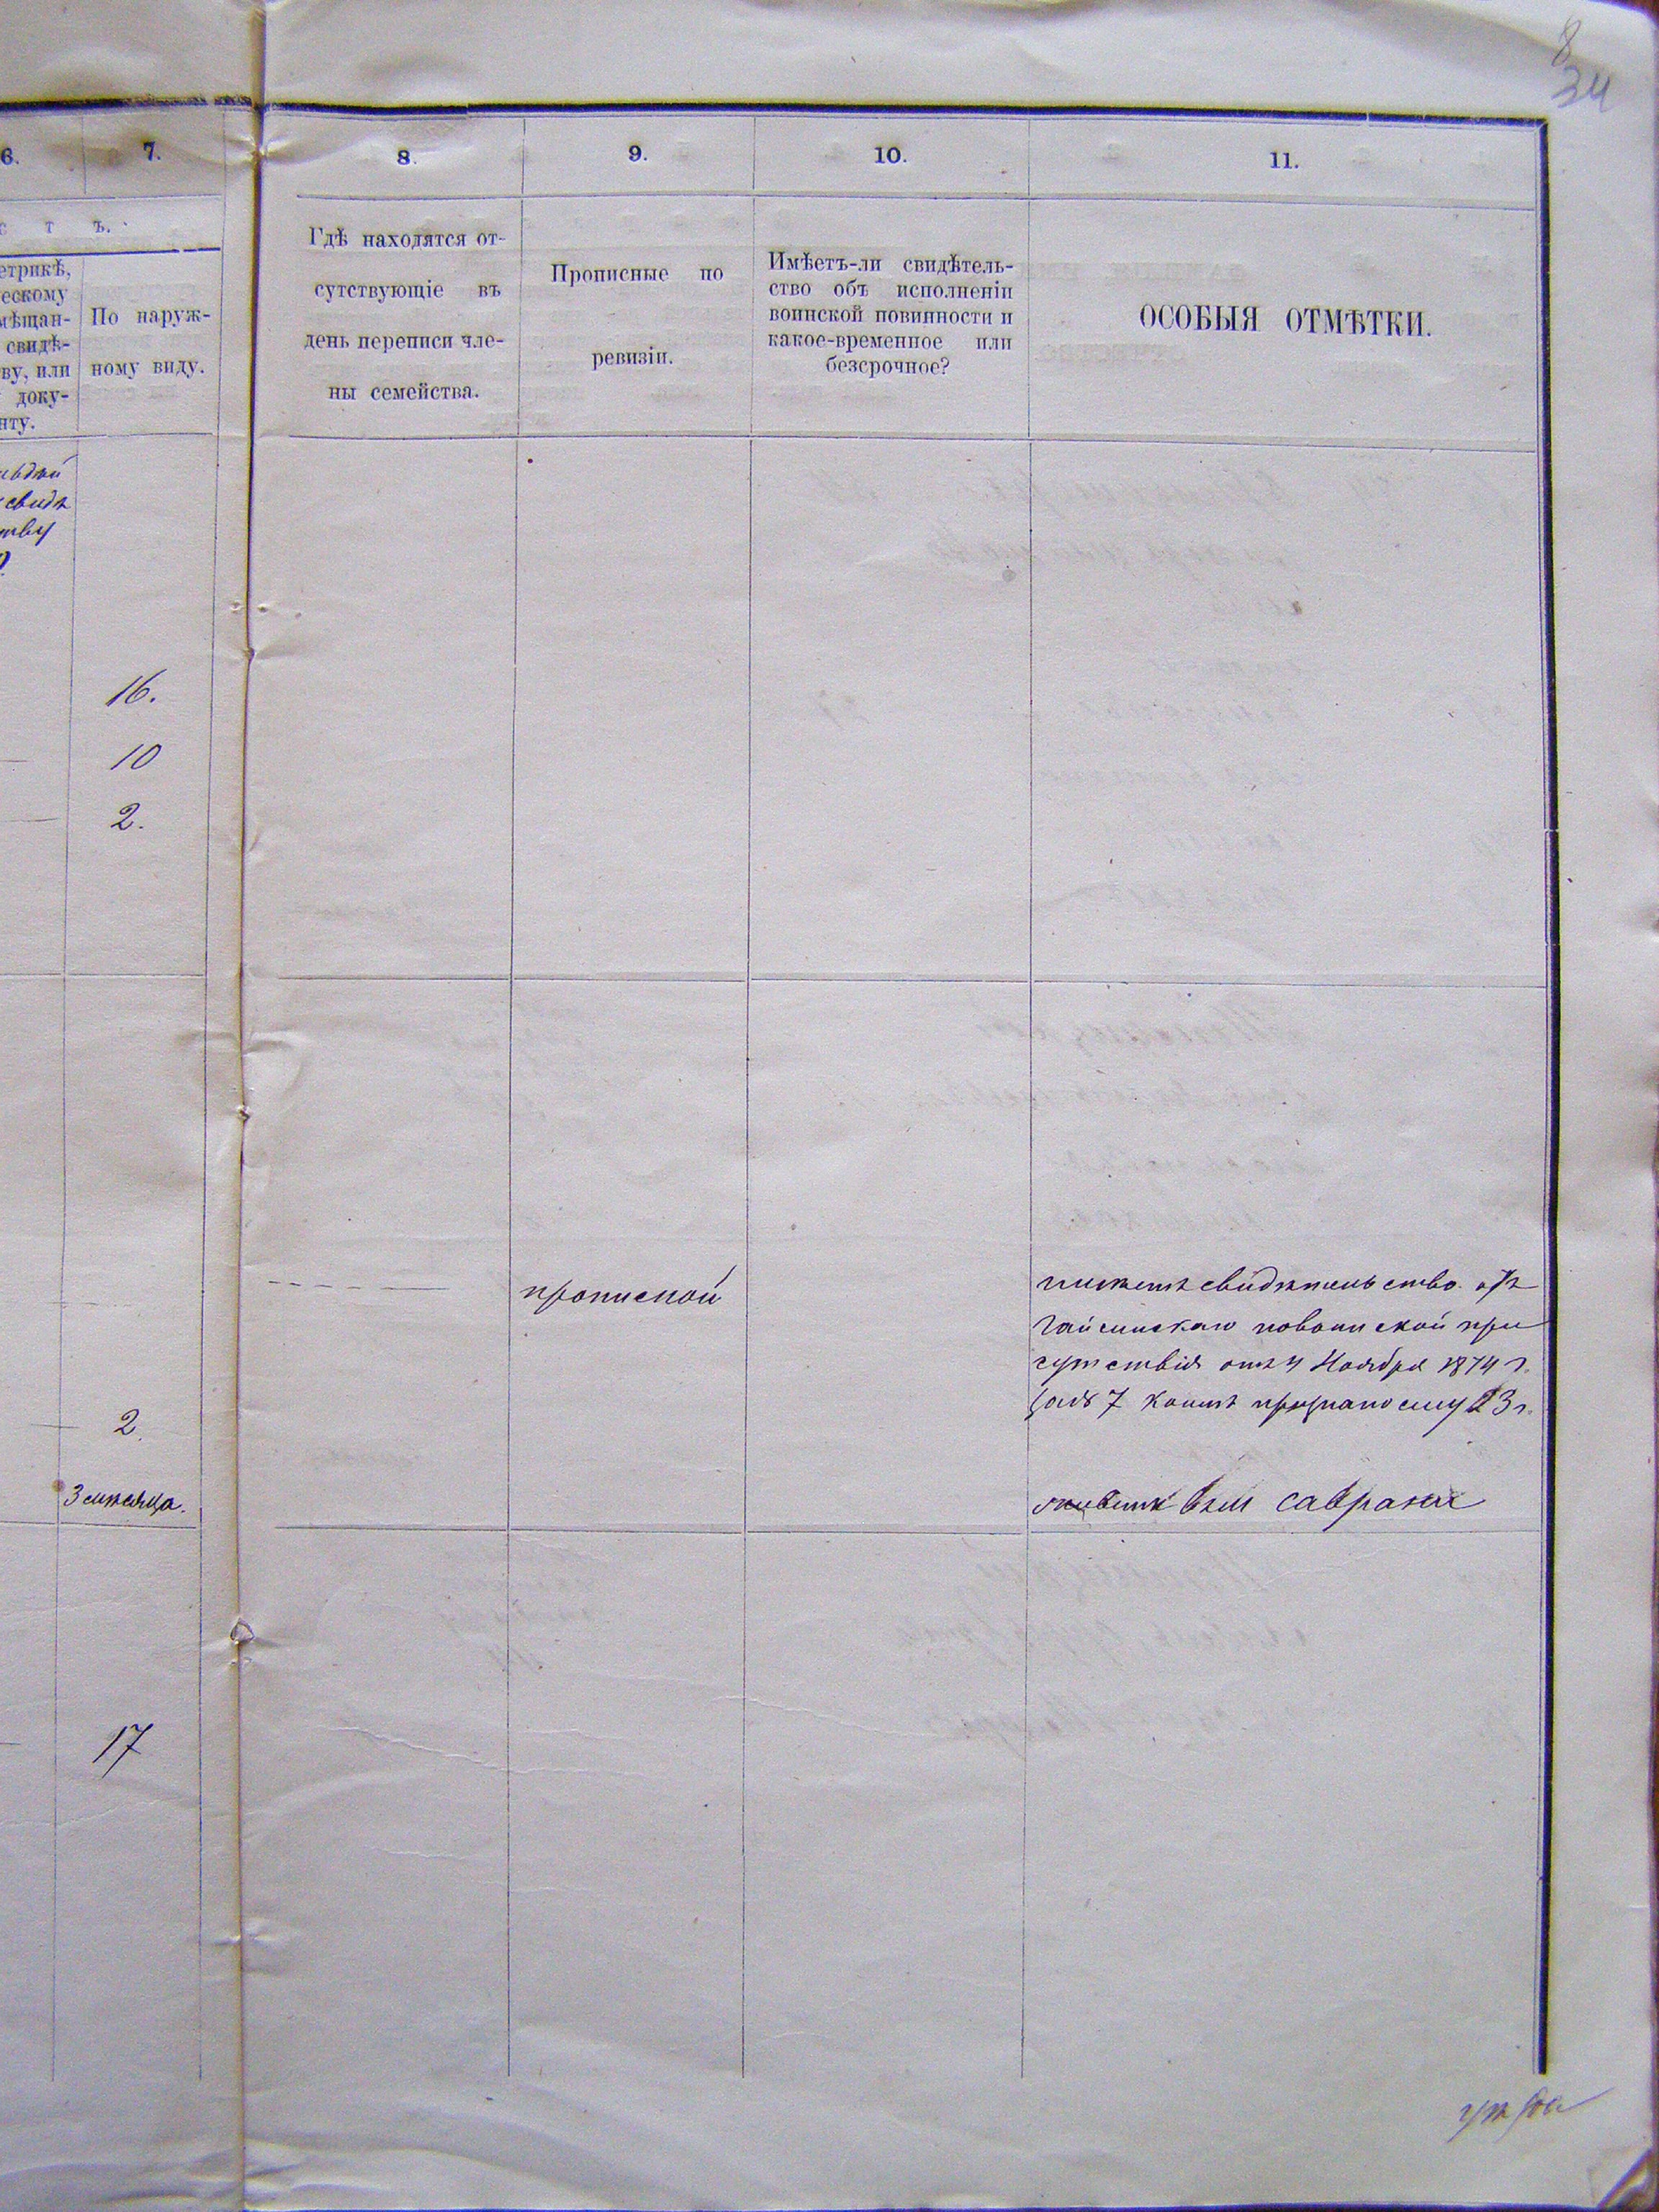 8
34
6.
7.
8.
9.
10.
11.
с т ъ.
етрикѣ,
ескому
мѣщан-
свидѣ-
ву, или
доку-
нту.
По наруж-
ному виду.
Гдѣ находятся от-
сутствующіе въ
день переписи чле-
ны семейства.
Прописные по
ревизіи.
Имѣетъ-ли свидѣтель-
ство объ исполненіи
воинской повинности и
какое-временное или
безсрочное?
ОСОБЫЯ ОТМѢТКИ.
свидѣ
16.
10
2.
прописной
имѣетъ свидѣтельство отъ
Гайсинскаго повоинской при
сутствія отъ 4 Ноября 1874 г.
за № 7 коимъ признано ему 23 г.
2.
3 мѣсяца.
живетъ въ м Саврани
17